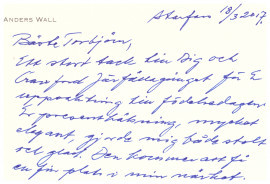 ANDERS WALL
Stenhamra 18/3 2017.
Bäste Torbjörn,
Ett stort tack till Dig och
Crawford Järfällagänget för Er
uppvaktning till födelsedagen.
Er present bakning, mycket
elegant, gjorde mig både stolt
och glad. Den kommer att få
en fin plats i min närhet.